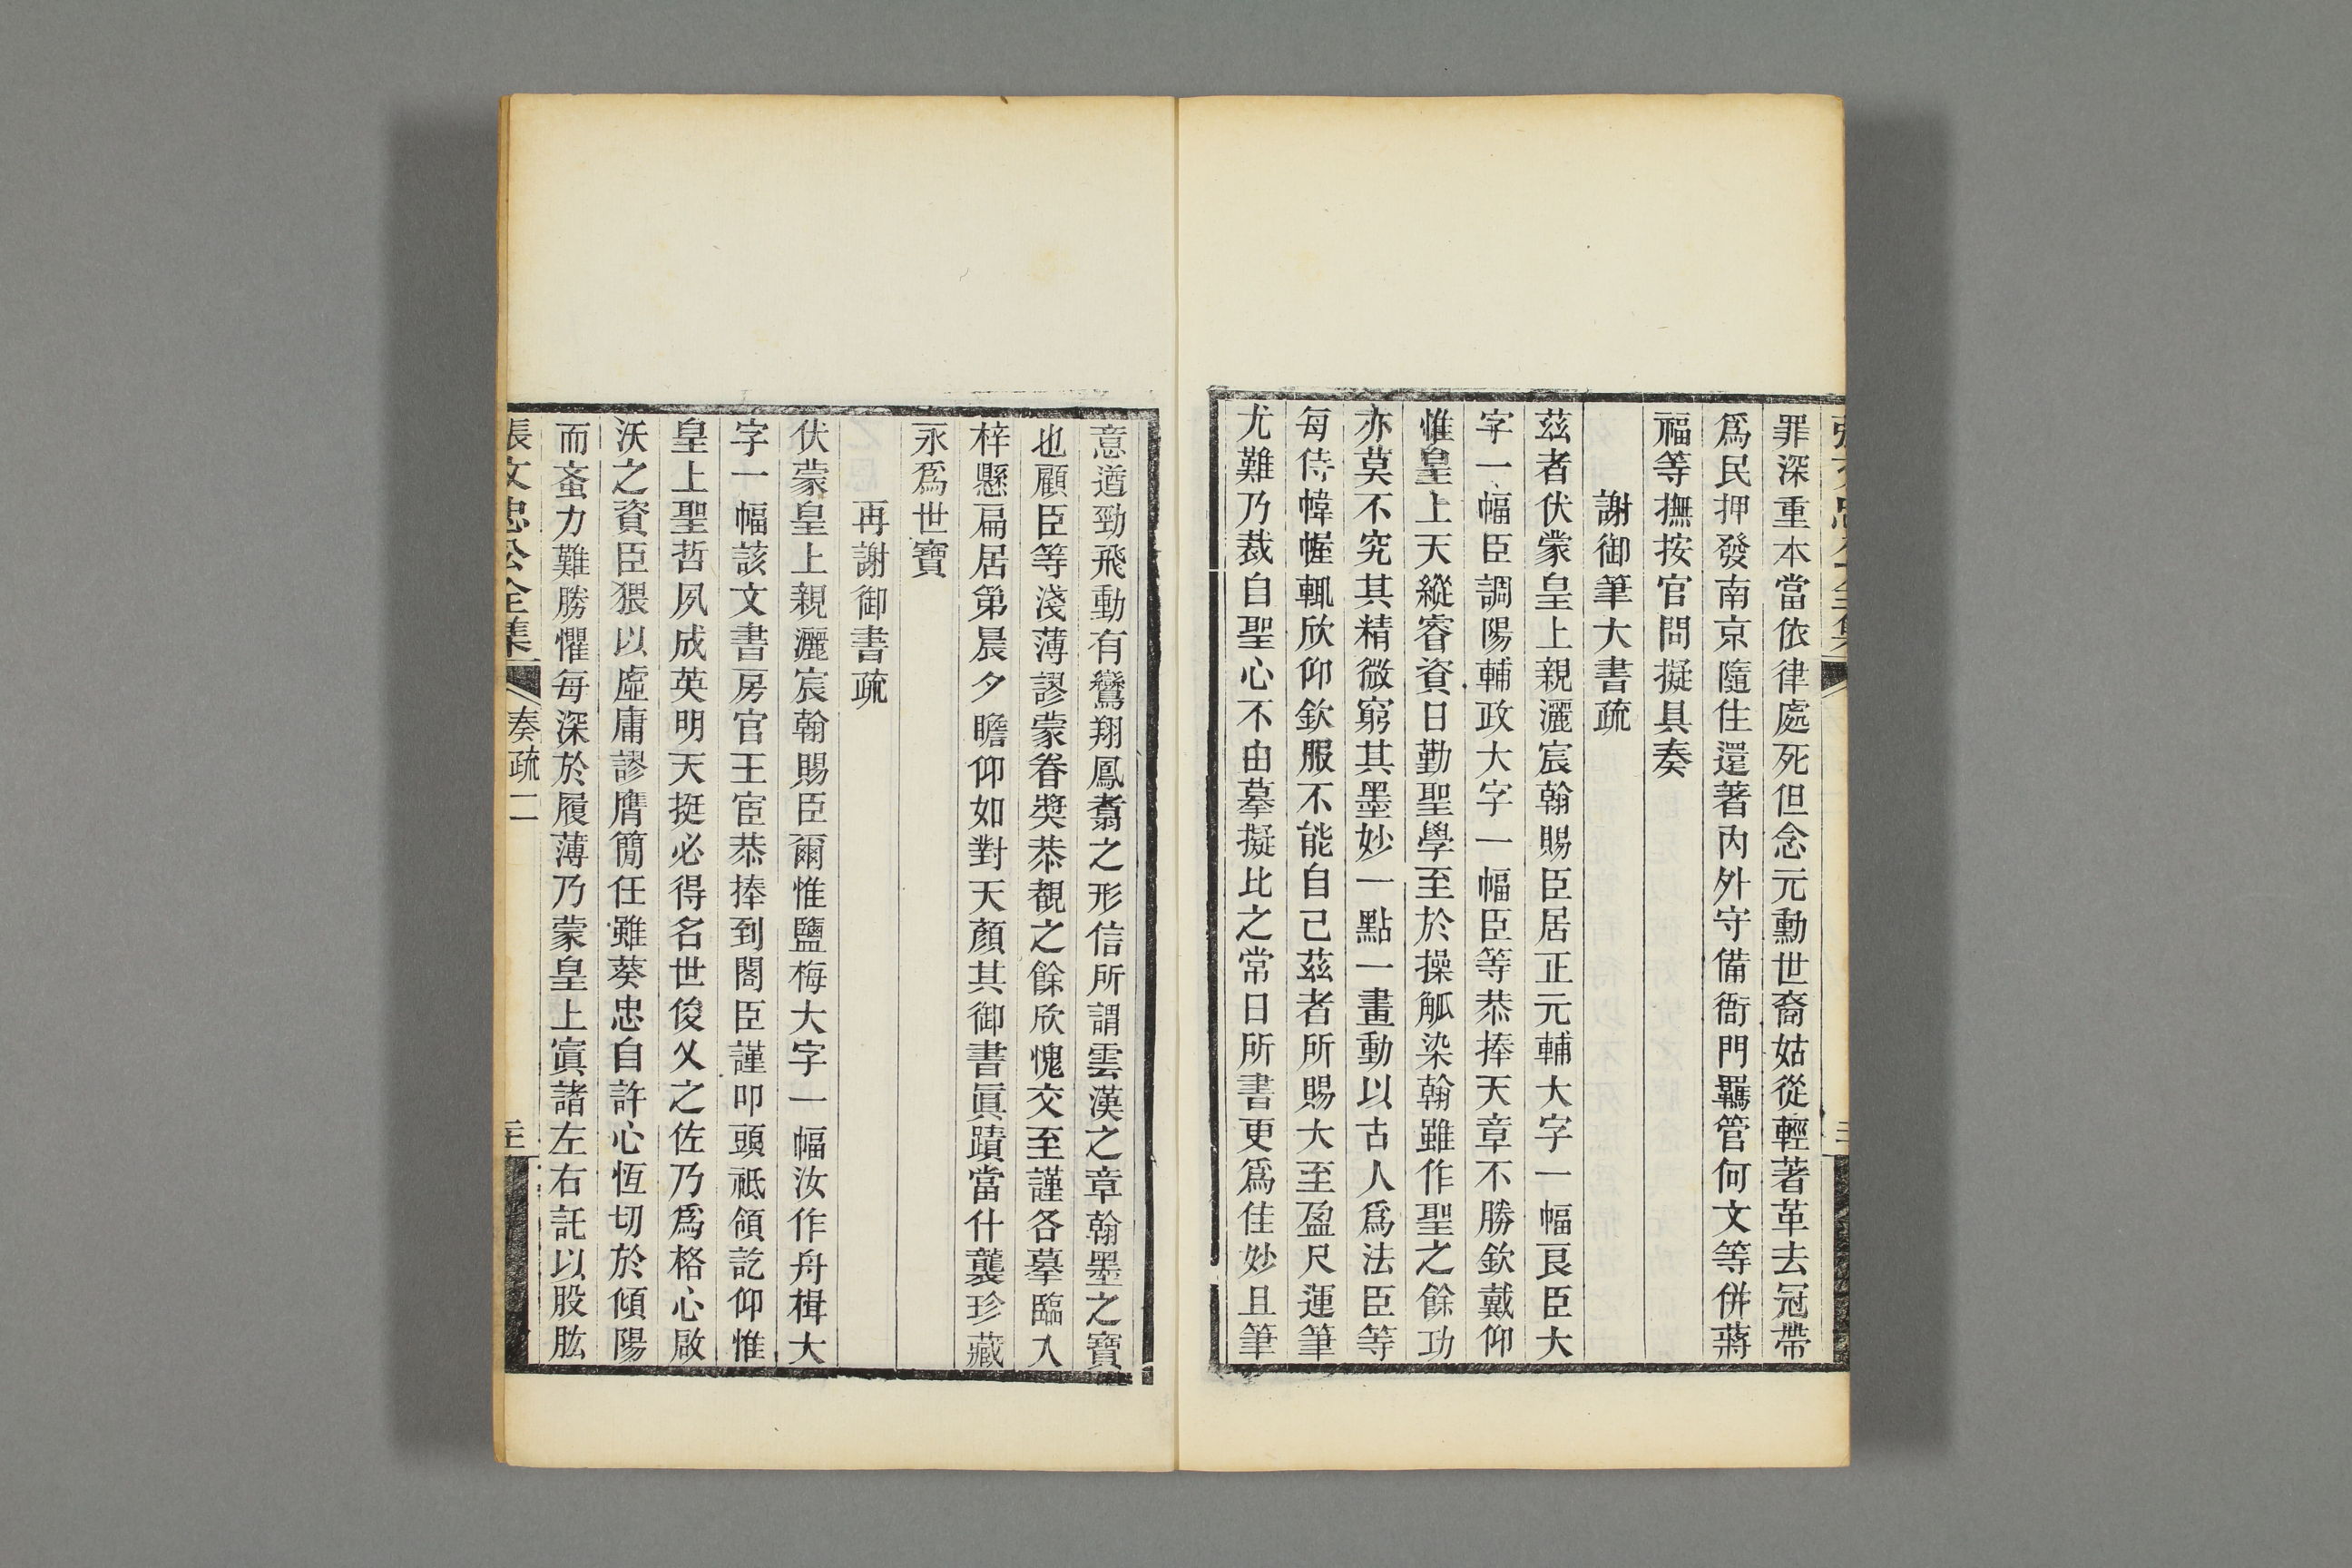 罪深重本當依律處死但念元勳世裔姑從輕著革去冠帶
爲民押發南京隨住還著內外守備衙門羈管何文等併蔣
福等撫按官問擬具奏
謝御筆大書疏
茲者伏蒙皇上親灑宸翰賜臣居正元輔大字一幅良臣大
字一幅臣調陽輔政大字一幅臣等恭捧天章不勝欽戴仰
惟皇上天縱睿資日勤聖學至於操觚染翰雖作聖之餘功
亦莫不究其精微窮其墨妙一點一畫動以古人爲法臣等
每侍幃幄輒欣仰欽服不能自已茲者所賜大至盈尺運筆
尤難乃裁自聖心不由摹擬比之常日所書更爲佳妙且筆
意遒勁飛動有鸞翔鳳翥之形信所謂雲漢之章翰墨之寶
也顧臣等淺薄謬蒙眷獎恭覩之餘欣愧交至謹各摹臨入
梓懸扁居第晨夕瞻仰如對天顏其御書眞蹟當什襲珍藏
永爲世寶
再謝御書疏
伏蒙皇上親灑宸翰賜臣爾惟鹽梅大字一幅汝作舟楫大
字一幅該文書房官王宦恭捧到閣臣謹叩頭祗領訖仰惟
皇上聖哲夙成英明天挺必得名世俊乂之佐乃爲格心啟
沃之資臣猥以虛庸謬膺簡任雖葵忠自許心恆切於傾陽
而蚉力難勝懼每深於履薄乃蒙皇上寘諸左右託以股肱
張文忠公全集
奏疏二